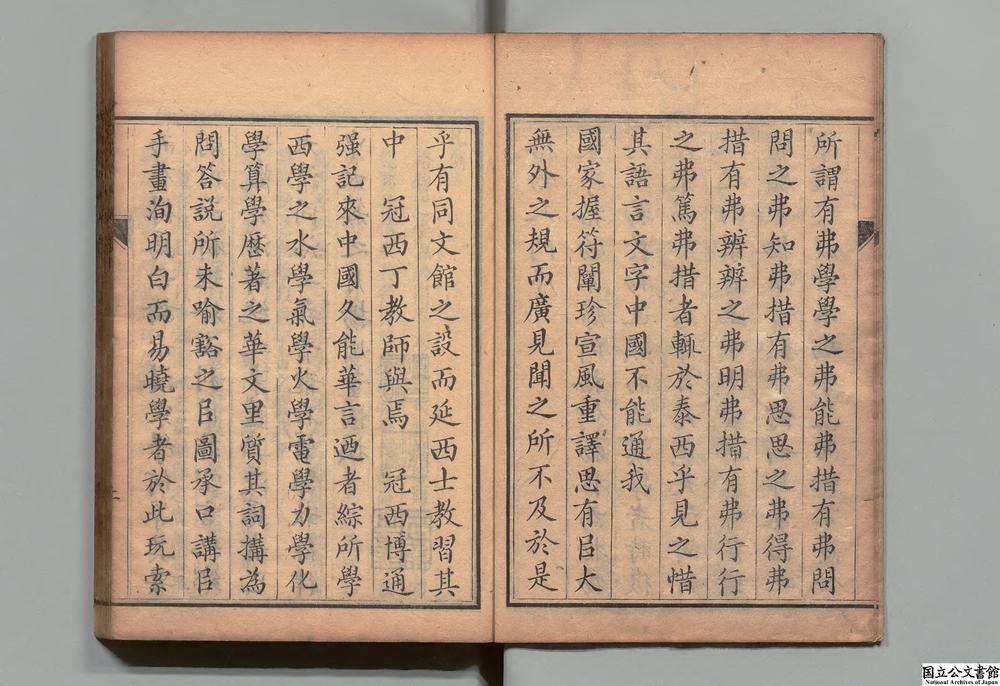 所謂有弗學學之弗能弗措有弗問
問之弗知弗措有弗思思之弗得弗
措有弗辨辨之弗明弗措有弗行行
之弗篤弗措者輒於泰西乎見之惜
其語言文字中國不能通我
國家握符闡珍宣風重譯思有㠯大
無外之規而廣見聞之所不及於是
乎有同文館之設而延西士教習其
中　冠西丁教師與焉　冠西博通
强記來中國久能華言迺者綜所學
西學之水學氣學火學電學力學化
學算學歷著之華文里質其詞搆為
問答說所未喻豁之㠯圖承口講㠯
手畫洵明白而易曉學者於此玩索
二
一
国立公文書館
National Archives of Japan